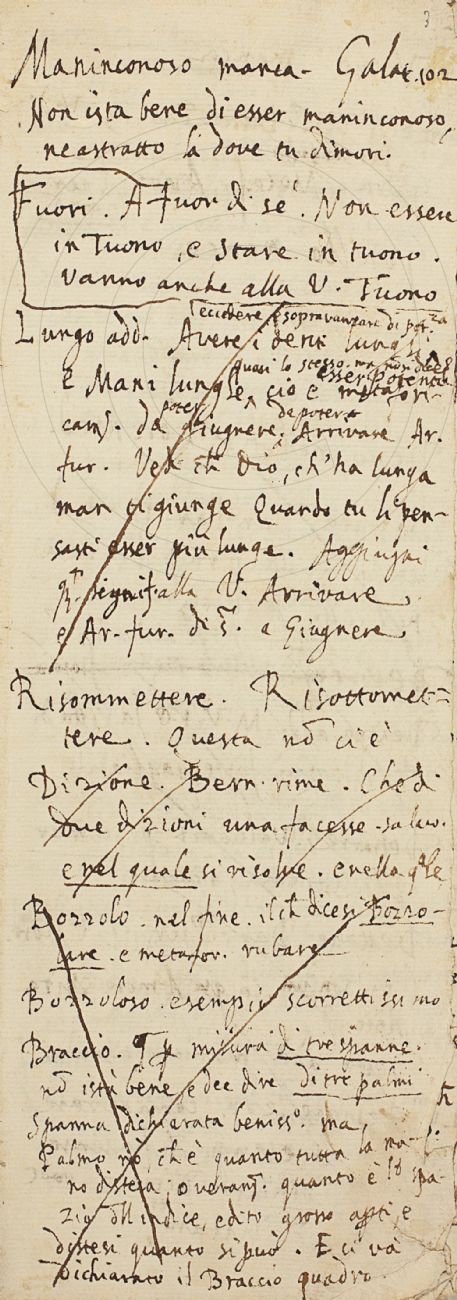 3
Maninconoso manca. Galat. 102
Non ista bene di esser maninconoso,
ne astratto là dove tu dimori.
Fuori. A fuor di sé. Non essere
in Tuono, e stare in tuono.
Vanno anche alla V. Tuono
eccedere e sopravanzare di pot.za
Lungo add. Avere i denti lunghi
quasi lo stesso. ma non dice
esser potente
e Mani lunghe, ciò è metafori-
cam. da poter giugnere, da poter Arrivare Ar.
fur. Vedi ch Dio, ch'ha lunga
man ti giunge Quando tu li pen-
sasti esser più lunge. Aggiugni
signif. alla V. Arrivare
e Ar. fur. di s. a Giugnere
Risommettere. Risottomet=
tere. Questa nō ci è
Dizione. Bern. rime. Che di
due dizioni una facesse
e nel quale si risolve. e nella q̄le
Bozzolo. nel fine. il ch dicesi Bozzo-
lare. e metafor. rubare
Bozzoloso. esempio scorrettissimo
Braccio. misura di tre spanne.
nō ista bene, e dee dire di tre palmi
Spanna dichiarata beniss.o ma
Palmo nò, ch è quanto tutta la ma-
no distesa; quanto è lo spa-
zio dll indice, e dito grosso apti, e
distesi quanto si può. E ci và
Dichiarato il Braccio quadro